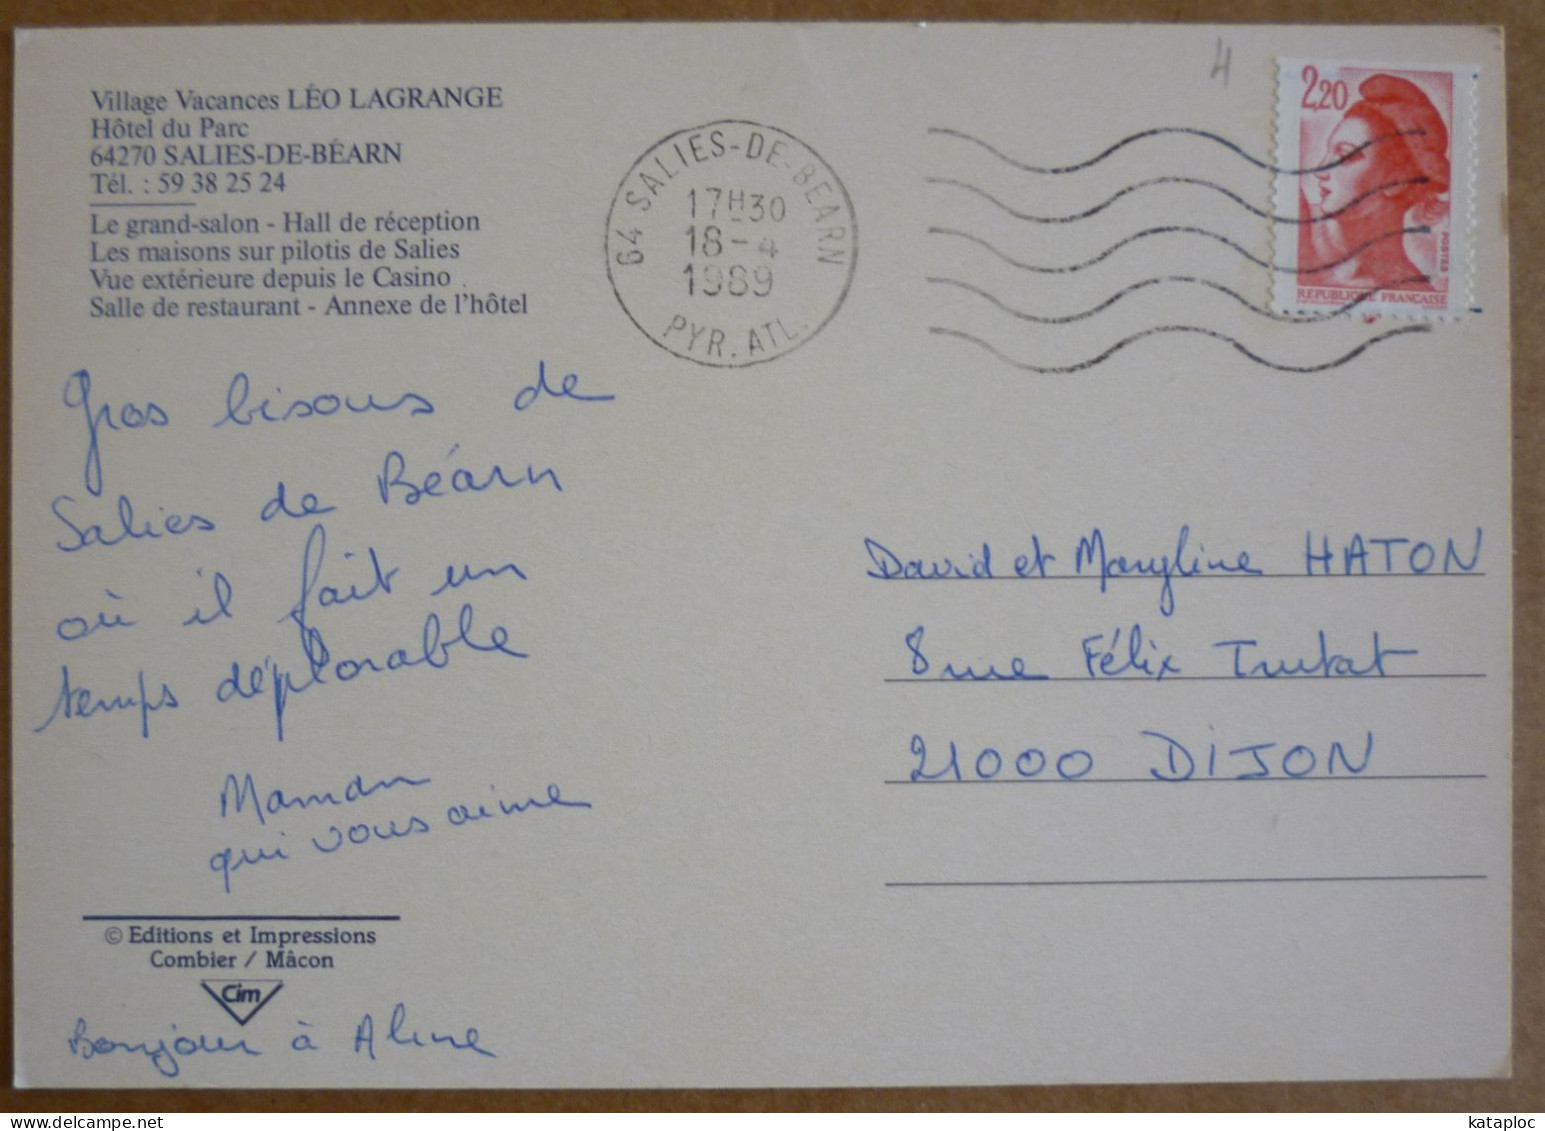 Village Vacances LÉO LAGRANGE
Hôtel du Parc
64270 SALIES-DE-BÉARN
Tél. : 59 38 25 24
Le grand-salon - Hall de réception
Les maisons sur pilotis de Salies
Vue extérieure depuis le Casino
Salle de restaurant - Annexe de l'hôtel
64 SALIES-DE-BEARN
17H30
18-4
1989
PYR. ATL.
4
2,20
POSTES
REPUBLIQUE FRANCAISE
Gros bisous de
Salies de Béarn
où il fait un
temps déplorable
Maman
qui vous aime
David et Maryline HATON
8 rue Félix Trutat
21000 DIJON
© Editions et Impressions
Combier / Mâcon
Cim
Bonjour à Aline
kataploc